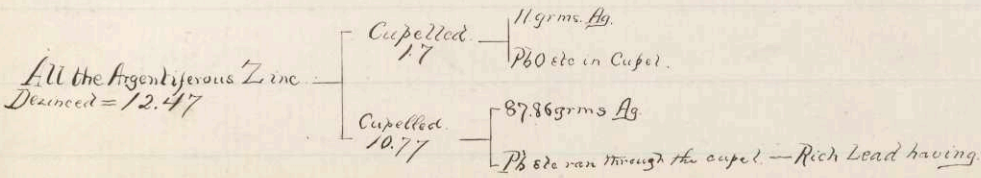 All the Argentiferous Zinc
Dezinced = 12.47
Cupelled.
1.7
11. grms. Ag.
PbO etc in Cupel.
Cupelled.
10.77
87.86 grms Ag.
Pb etc ran through the cupel. — Rich Lead having.